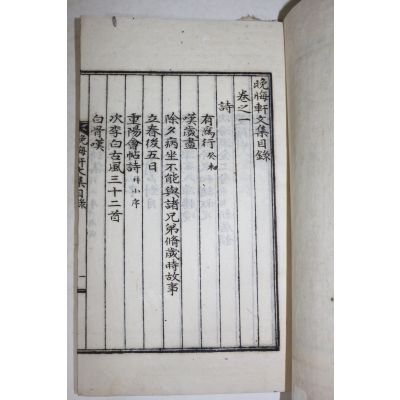 晩悔軒文集目錄
卷之一
詩
有爲行 癸和
嘆歲盡
除夕病坐不能與諸兄弟脩歲時故事
立春後五日
重陽會帖詩 幷小序
次李白古風三十二首
白骨嘆
晩悔軒文集目錄
一